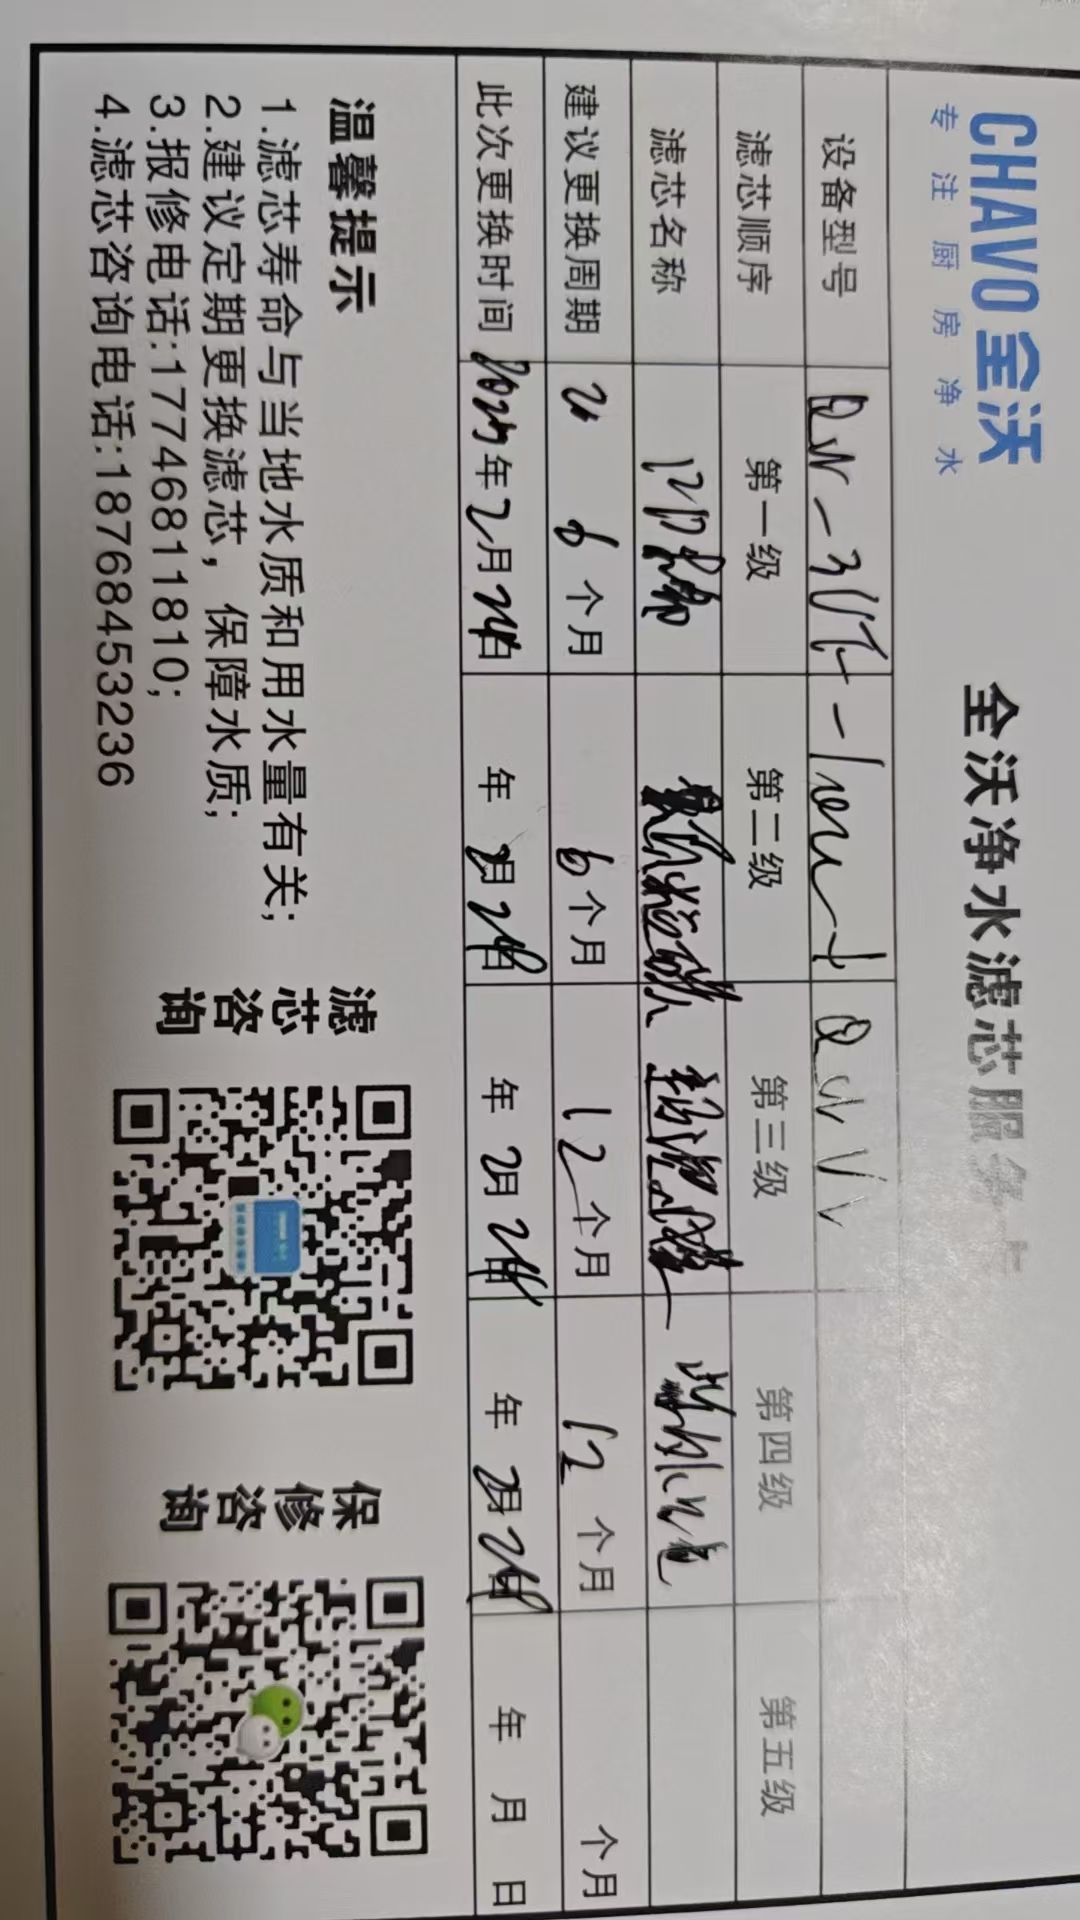 CHAVO 全沃
专注厨房净水
全沃净水滤芯服务卡
设备型号
滤芯顺序 第一级 第二级 第三级 第四级 第五级
滤芯名称
建议更换周期 6个月 6个月 12个月 12个月 个月
此次更换时间 年2月24日 年2月24日 年2月24日 年2月24日 年 月 日
温馨提示
1.滤芯寿命与当地水质和用水量有关;
2.建议定期更换滤芯，保障水质;
3.报修电话:17746811810;
4.滤芯咨询电话:18768453236
滤芯咨询
保修咨询